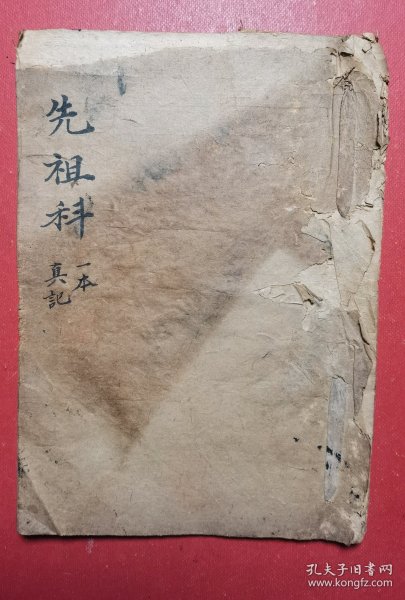 先祖科
一本
真記
孔夫子旧书网
www.kongfz.com